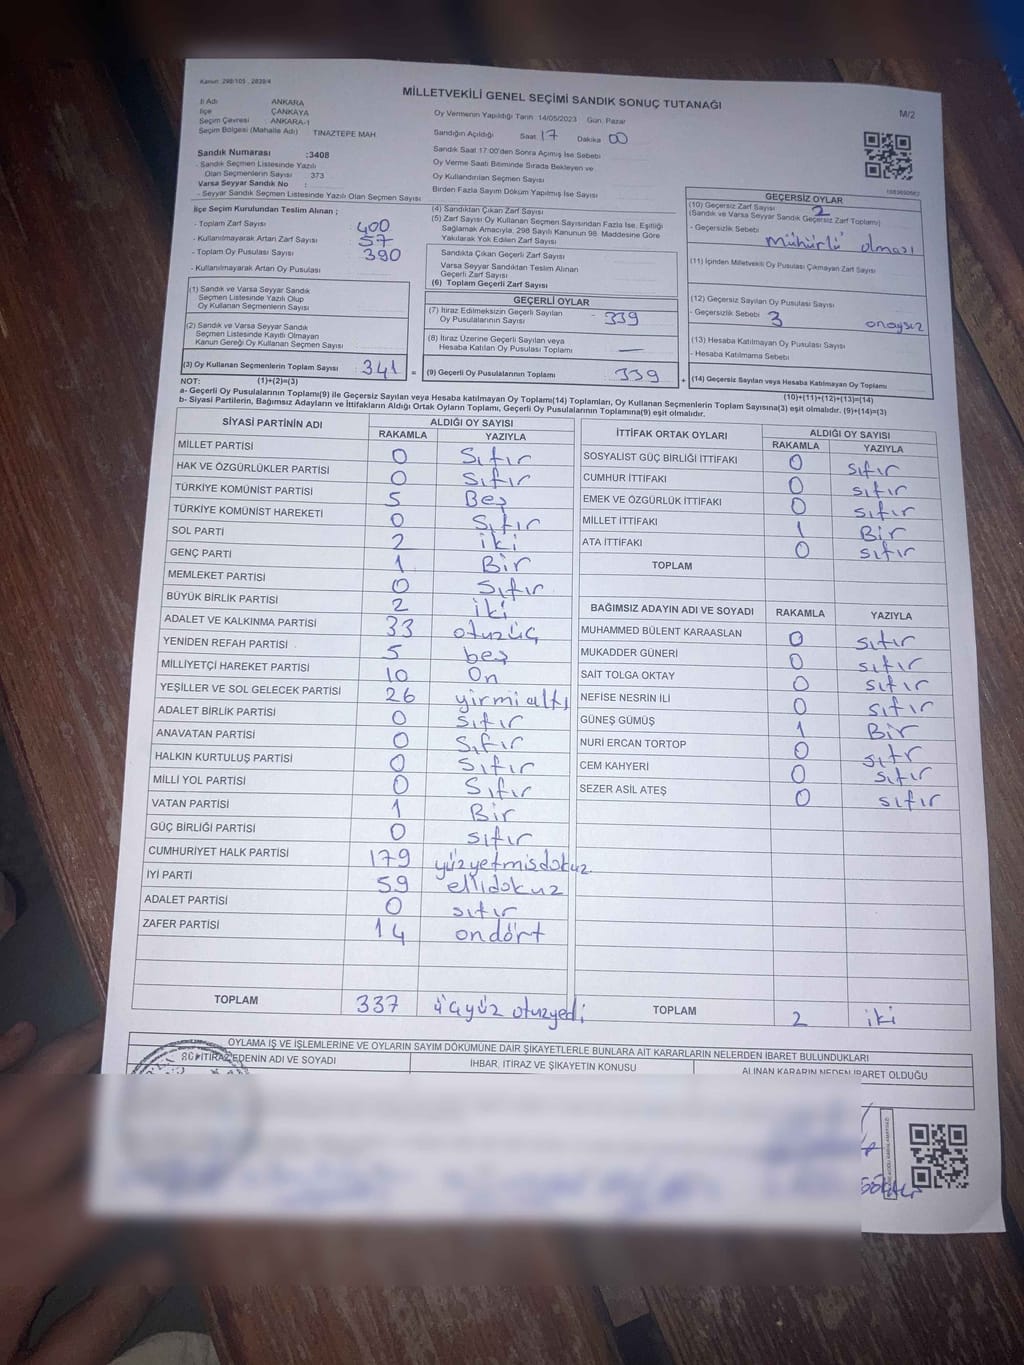 Kanun: 298/105 , 2839/4
MİLLETVEKİLİ GENEL SEÇİMİ SANDIK SONUÇ TUTANAĞI
M/2
İl Adı ANKARA
İlçe ÇANKAYA
Seçim Çevresi : ANKARA-1
Seçim Bölgesi (Mahalle Adı) TINAZTEPE MAH
Sandık Numarası :3408
- Sandık Seçmen Listesinde Yazılı
Olan Seçmenlerin Sayısı 373
Varsa Seyyar Sandık No :
- Seyyar Sandık Seçmen Listesinde Yazılı Olan Seçmen Sayısı
Oy Vermenin Yapıldığı Tarih 14/05/2023 Gün. Pazar
Sandığın Açıldığı Saat 17 Dakika 00
Sandık Saat 17:00'den Sonra Açılmış İse Sebebi
Oy Verme Saati Bitiminde Sırada Bekleyen ve
Oy Kullandırılan Seçmen Sayısı
Birden Fazla Sayım Döküm Yapılmış İse Sayısı
İlçe Seçim Kurulundan Teslim Alınan ;
- Toplam Zarf Sayısı 400
- Kullanılmayarak Artan Zarf Sayısı 57
- Toplam Oy Pusulası Sayısı 390
- Kullanılmayarak Artan Oy Pusulası
(1) Sandık ve Varsa Seyyar Sandık
Seçmen Listesinde Yazılı Olup
Oy Kullanan Seçmenlerin Sayısı
(2) Sandık ve Varsa Seyyar Sandık
Seçmen Listesinde Kayıtlı Olmayan
Kanun Gereği Oy Kullanan Seçmen Sayısı
(3) Oy Kullanan Seçmenlerin Toplam Sayısı 341 =
(1)+(2)=(3)
(4) Sandıktan Çıkan Zarf Sayısı
(5) Zarf Sayısı Oy Kullanan Seçmen Sayısından Fazla İse, Eşitliği
Sağlamak Amacıyla, 298 Sayılı Kanunun 98. Maddesine Göre
Yakılarak Yok Edilen Zarf Sayısı
Sandıkta Çıkan Geçerli Zarf Sayısı
Varsa Seyyar Sandıktan Teslim Alınan
Geçerli Zarf Sayısı
(6) Toplam Geçerli Zarf Sayısı
GEÇERLİ OYLAR
(7) İtiraz Edilmeksizin Geçerli Sayılan
Oy Pusulalarının Sayısı 339
(8) İtiraz Üzerine Geçerli Sayılan veya
Hesaba Katılan Oy Pusulası Toplamı —
(9) Geçerli Oy Pusulalarının Toplamı 339 +
GEÇERSİZ OYLAR
(10) Geçersiz Zarf Sayısı 2
(Sandık ve Varsa Seyyar Sandık Geçersiz Zarf Toplamı)
- Geçersizlik Sebebi mühürlü olması
(11) İçinden Milletvekili Oy Pusulası Çıkmayan Zarf Sayısı
(12) Geçersiz Sayılan Oy Pusulası Sayısı
- Geçersizlik Sebebi 3 onaysız
(13) Hesaba Katılmayan Oy Pusulası Sayısı
- Hesaba Katılmama Sebebi
(14) Geçersiz Sayılan veya Hesaba Katılmayan Oy Toplamı
(10)+(11)+(12)+(13)=(14)
NOT:
a- Geçerli Oy Pusulalarının Toplamı(9) ile Geçersiz Sayılan veya Hesaba katılmayan Oy Toplamı(14) Toplamları, Oy Kullanan Seçmenlerin Toplam Sayısına(3) eşit olmalıdır. (9)+(14)=(3)
b- Siyasi Partilerin, Bağımsız Adayların ve İttifakların Aldığı Ortak Oyların Toplamı, Geçerli Oy Pusulalarının Toplamına(9) eşit olmalıdır.
SİYASİ PARTİNİN ADI ALDIĞI OY SAYISI
RAKAMLA YAZIYLA
MİLLET PARTİSİ 0 Sıfır
HAK VE ÖZGÜRLÜKLER PARTİSİ 0 Sıfır
TÜRKİYE KOMÜNİST PARTİSİ 5 Beş
TÜRKİYE KOMÜNİST HAREKETİ 0 Sıfır
SOL PARTİ 2 iki
GENÇ PARTİ 1 Bir
MEMLEKET PARTİSİ 0 Sıfır
BÜYÜK BİRLİK PARTİSİ 2 iki
ADALET VE KALKINMA PARTİSİ 33 otuzüç
YENİDEN REFAH PARTİSİ 5 beş
MİLLİYETÇİ HAREKET PARTİSİ 10 On
YEŞİLLER VE SOL GELECEK PARTİSİ 26 yirmi altı
ADALET BİRLİK PARTİSİ 0 sıfır
ANAVATAN PARTİSİ 0 Sıfır
HALKIN KURTULUŞ PARTİSİ 0 Sıfır
MİLLİ YOL PARTİSİ 0 Sıfır
VATAN PARTİSİ 1 Bir
GÜÇ BİRLİĞİ PARTİSİ 0 sıfır
CUMHURİYET HALK PARTİSİ 179 yüzyetmişdokuz
İYİ PARTİ 59 ellidokuz
ADALET PARTİSİ 0 sıfır
ZAFER PARTİSİ 14 ondört
TOPLAM 337 üçyüz otuzyedi
İTTİFAK ORTAK OYLARI ALDIĞI OY SAYISI
RAKAMLA YAZIYLA
SOSYALİST GÜÇ BİRLİĞİ İTTİFAKI 0 sıfır
CUMHUR İTTİFAKI 0 sıfır
EMEK VE ÖZGÜRLÜK İTTİFAKI 0 sıfır
MİLLET İTTİFAKI 1 Bir
ATA İTTİFAKI 0 sıfır
TOPLAM
BAĞIMSIZ ADAYIN ADI VE SOYADI RAKAMLA YAZIYLA
MUHAMMED BÜLENT KARAASLAN 0 sıfır
MUKADDER GÜNERİ 0 sıfır
SAİT TOLGA OKTAY 0 sıfır
NEFİSE NESRİN İLİ 0 sıfır
GÜNEŞ GÜMÜŞ 1 Bir
NURİ ERCAN TORTOP 0 sıfr
CEM KAHYERİ 0 sıfır
SEZER ASİL ATEŞ 0 sıfır
TOPLAM 2 iki
OYLAMA İŞ VE İŞLEMLERİNE VE OYLARIN SAYIM DÖKÜMÜNE DAİR ŞİKAYETLERLE BUNLARA AİT KARARLARIN NELERDEN İBARET BULUNDUKLARI
İTİRAZ EDENİN ADI VE SOYADI İHBAR, İTİRAZ VE ŞİKAYETİN KONUSU ALINAN KARARIN NEDEN İBARET OLDUĞU